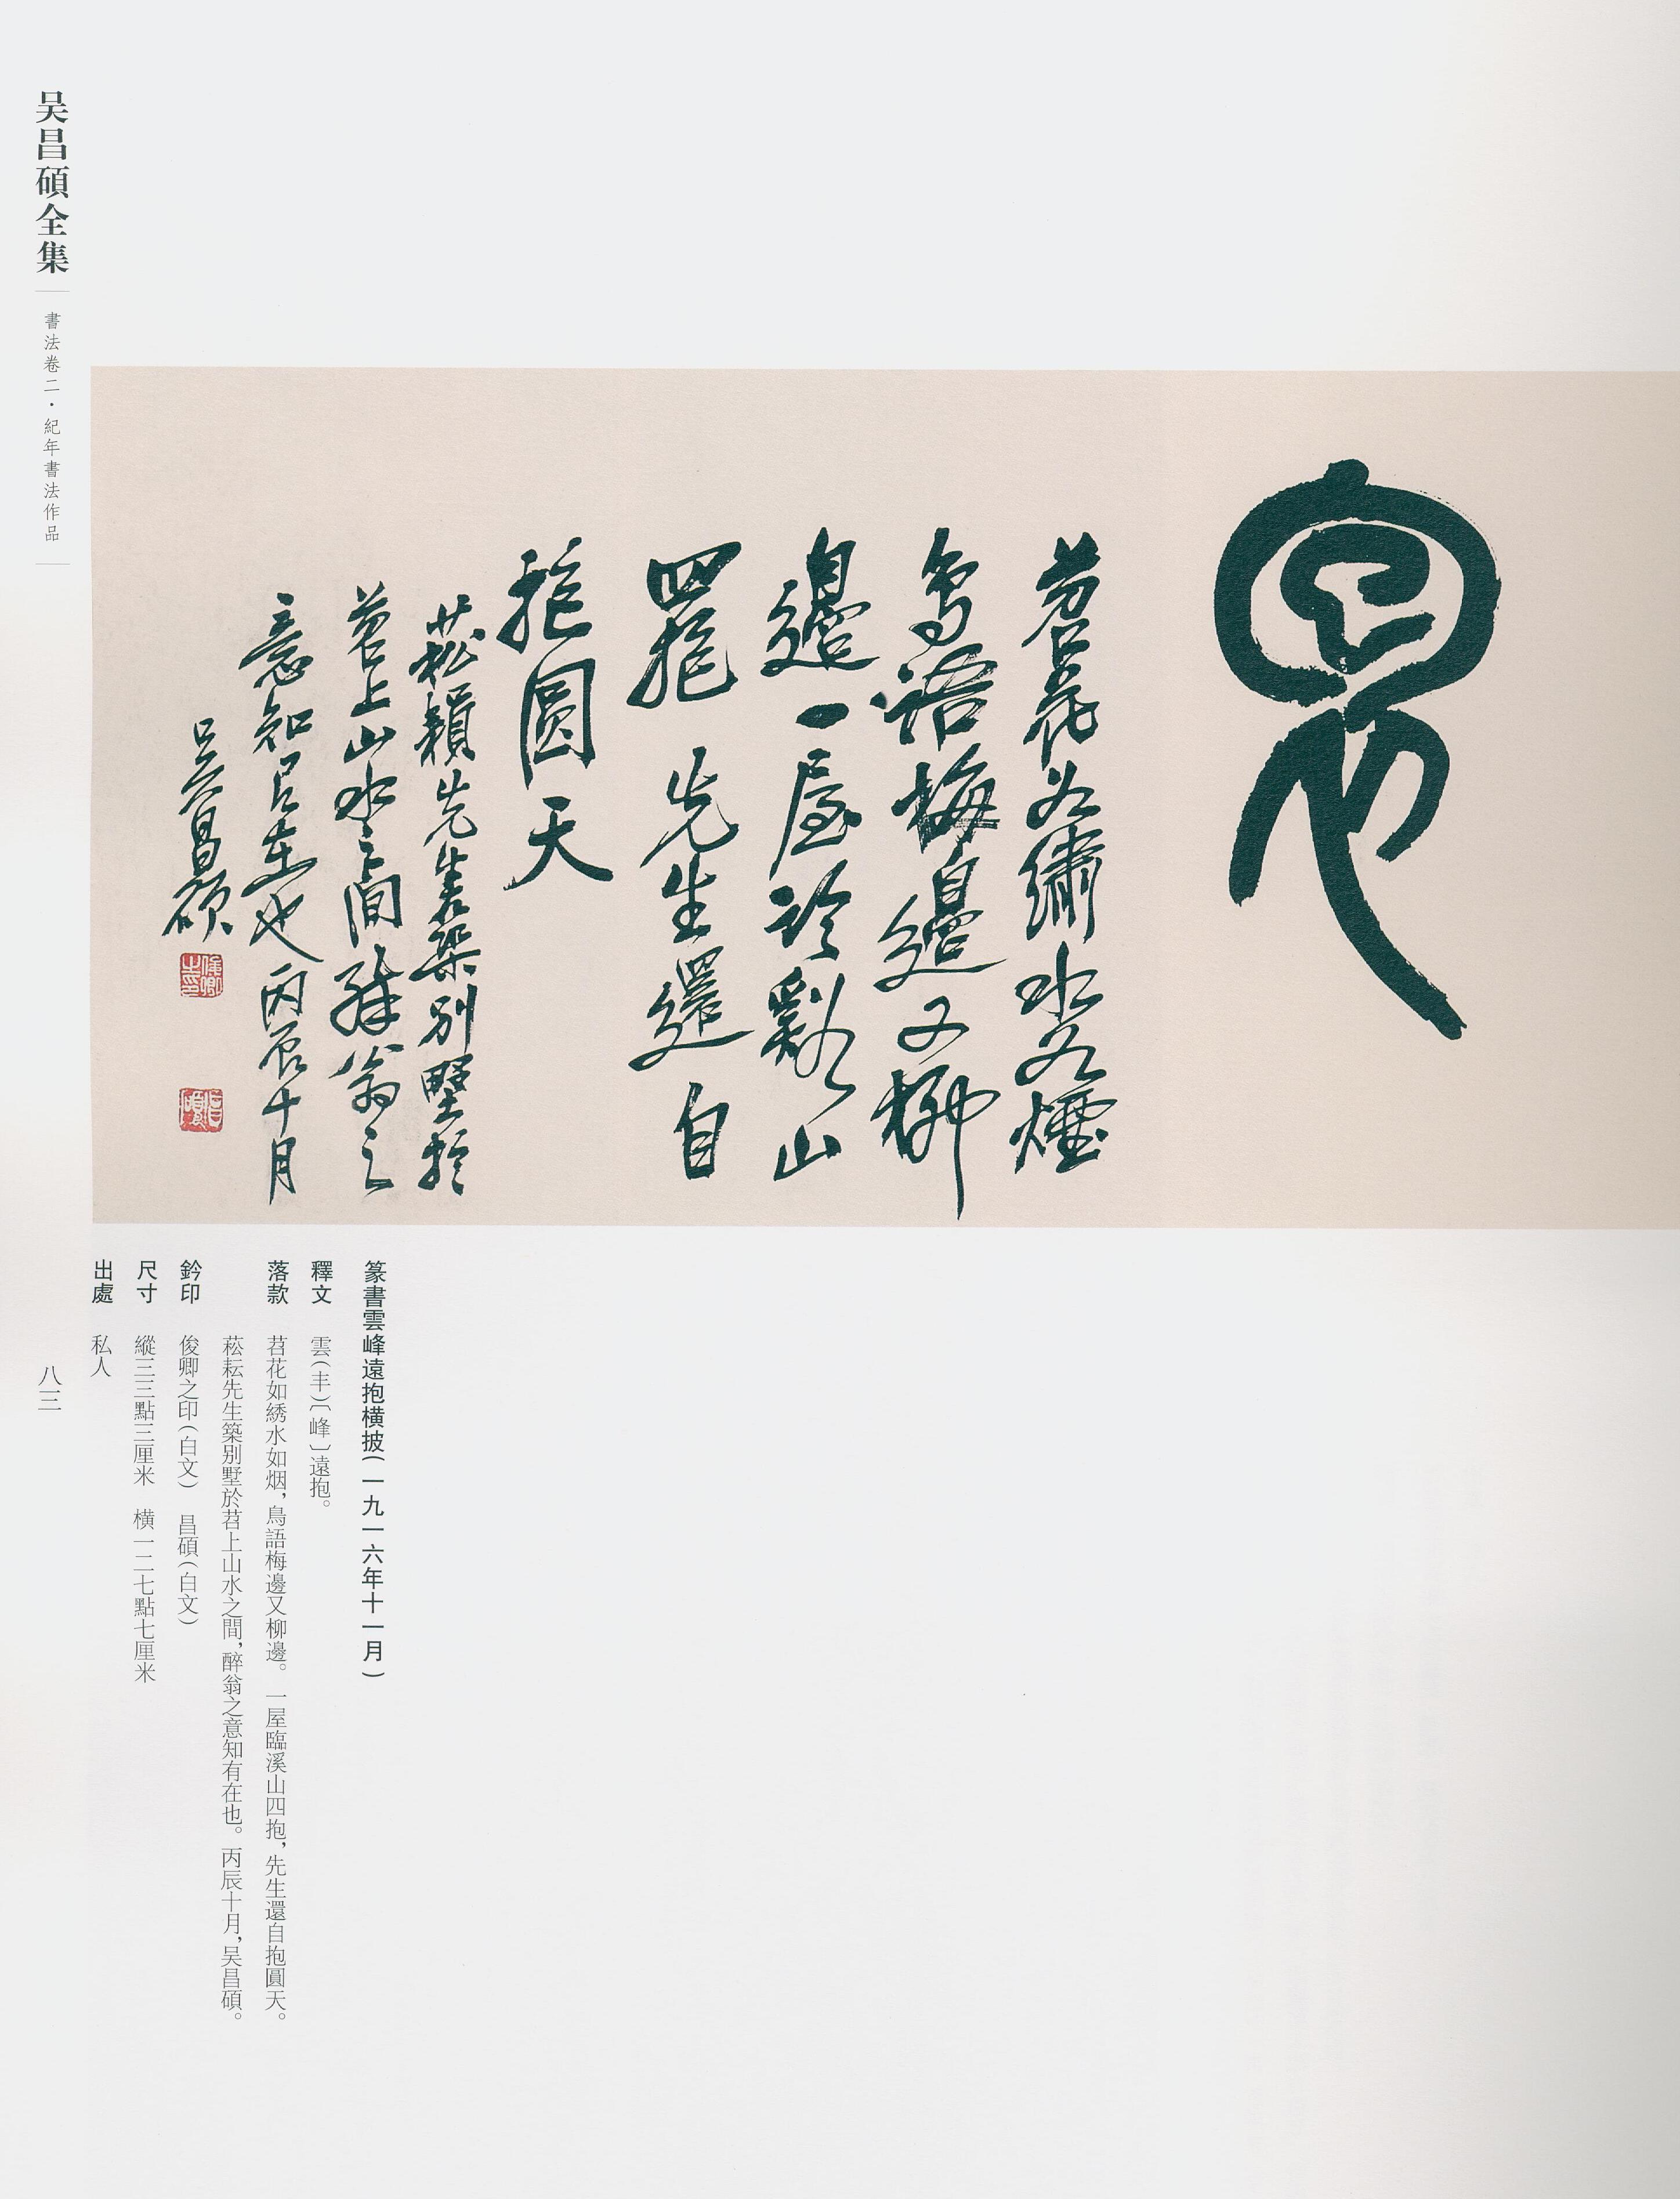 抱
苕花如繡水如煙
鳥語梅邊又柳
邊一屋臨谿山
四抱先生還自
抱圓天
菘耘先生築別墅於
苕上山水之間醉翁之
意知有在也丙辰十月
吴昌碩
俊卿之印
昌碩
篆書雲峰遠抱横披(一九一六年十一月)
釋文 雲(丰)〔峰〕遠抱。
落款 苕花如綉水如烟,鳥語梅邊又柳邊。一屋臨溪山四抱,先生還自抱圓天。
菘耘先生築别墅於苕上山水之間,醉翁之意知有在也。丙辰十月,吴昌碩。
鈐印 俊卿之印(白文) 昌碩(白文)
尺寸 縱三三點三厘米 横一二七點七厘米
出處 私人
吴昌碩全集
書法卷二·紀年書法作品
八三